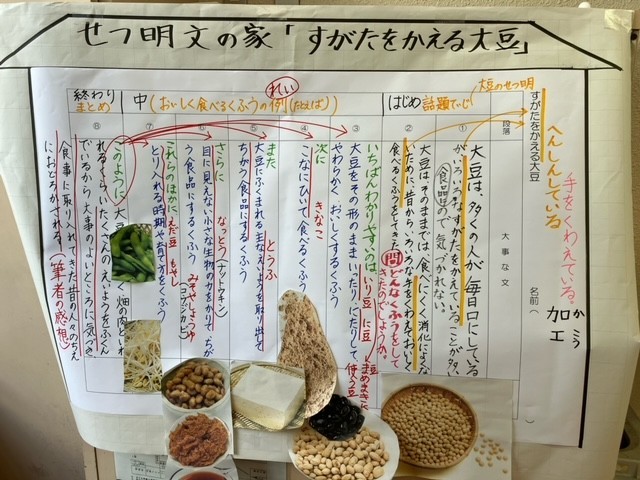 せつ明文の家「すがたをかえる大豆」
手をくわえている。
加工
かこう
名前（
へんしんしている
大豆のせつ明
すがたをかえる大豆
段落
大事な文
はじめ 話題ていじ
①
大豆は、多くの人が毎日口にしている
がいろいろなすがたをかえていることが多い
食品なので気づかれない。
②
大豆はそのままでは食べにくく消化によくな
いため、昔からいろいろ手をくわえておいしく
食べるくふうをしてきた
問 どんなくふうをして
きたのでしょうか。
れい
中（おいしく食べるくふうの例（たとえば）
③
いちばん分かりやすいのは、いり豆 に豆
大豆をその形のままいったり、にたりして、
やわらかく、おいしくするくふう
④
次に きなこ
こなにひいて食べるくふう
⑤
また とうふ
大豆にふくまれる主なえいようを取り出して
ちがう食品にするくふう
⑥
さらに なっとう（ナットウキン）
目に見えない小さな生物の力をかりて、ちが
う食品にするくふう みそやしょうゆ
（コウジカビ）
⑦
これらのほかに えだ豆 もやし
とり入れる時期や育て方をくふう
終わり
まとめ
⑧
このように大豆
畑の肉といわ
れるくらいたくさんのえいようをふくん
でいるから
大事のよいところに気づき
食事に取り入れてきた昔の人々のちえ
におどろかされる（筆者の感想）